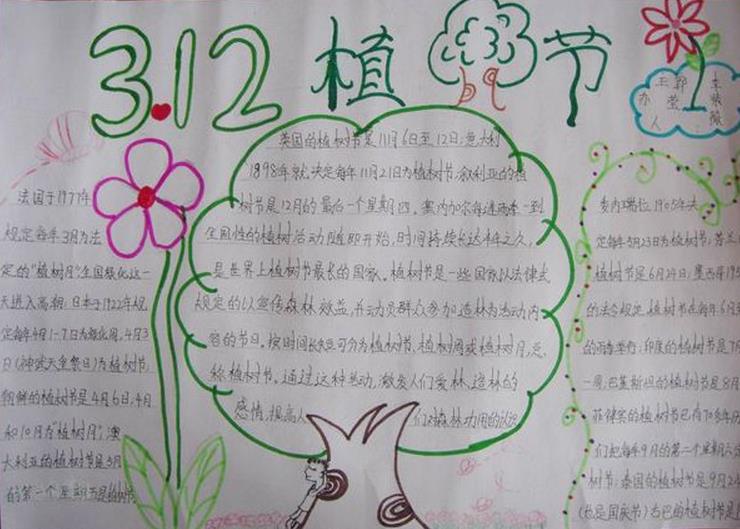 3.12 植树节
王 郭 李
办 莹 紫薇
人
法国于1977年
规定每年3月为法
定的"植树月"全国绿化这一
天进入高潮;日本于1922年规
定每年4月1-7日为绿化周,4月3
日(神武天皇祭日)为植树节
朝鲜的植树节是4月6日,4月
和10月为"植树月",澳
大利亚的植树节是5月
的第一个星期五是植树节
英国的植树节是11月6日至12日;意大利
1898年就决定每年11月21日为植树节,叙利亚的植
树节是12月的最后一个星期四。塞内加尔每逢雨季一到
全国性的植树活动随即开始,时间持续长达半年之久,
是世界上植树节最长的国家。植树节是一些国家以法律式
规定的以宣传森林效益,并动员群众参加造林为活动内
容的节日。按时间长短可分为植树节、植树周或植树月,总
称植树节。通过这种活动,激发人们爱林、造林的
感情,提高人们对森林功用的认识
委内瑞拉1905年决
定每年5月23日为植树节;芬兰
植树节是6月24日;墨西哥195
的法令规定,植树节在每年6月
的雨季举行;印度的植树节是7月
一周,巴基斯坦的植树节是8月
菲律宾的植树节已有70多年历
们把每年9月的第二个星期六定
树节;泰国的植树节是9月24
(也是国庆节)古巴的植树节是1